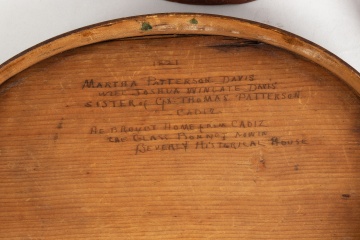 1821
MARTHA PATTERSON DAVIS
WIFE JOSHUA WINGATE DAVIS
SISTER of CPT THOMAS PATTERSON
CADIZ
HE BROUGT HOME FROM CADIZ
THE GLASS now in
BEVERLY HISTORICAL HOUSE